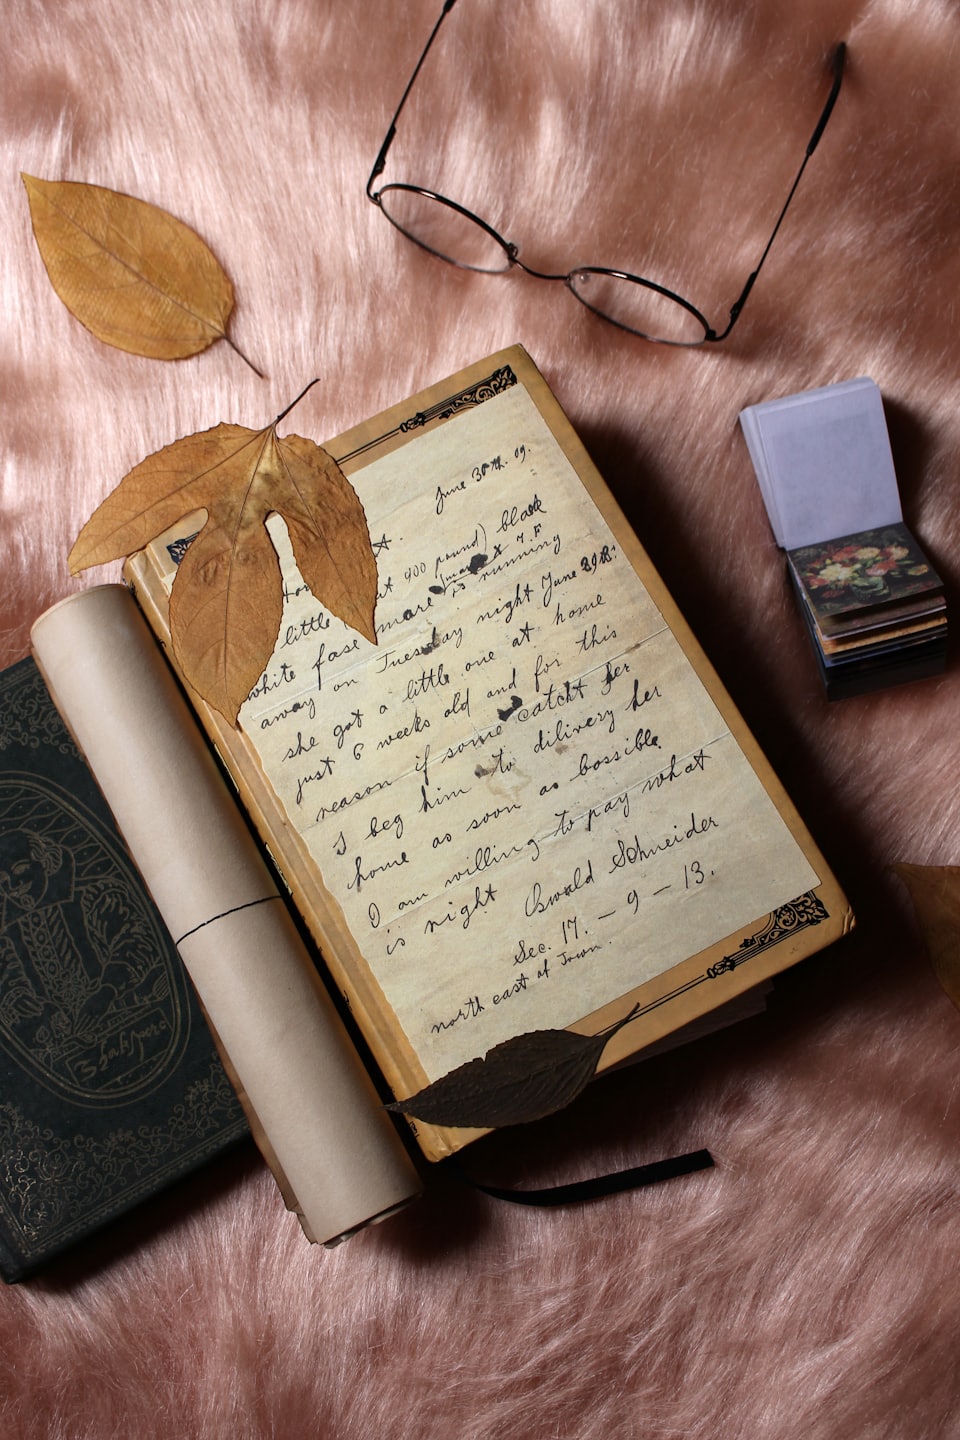 June 30th. 09.
little at 900 pound) black
white fase mare (mark X 7.F
is running
away on Tuesday night June 29th.
she got a little one at home
just 6 weeks old and for this
reason if some catcht her
I beg him to dilivery her
home as soon as bossible.
I am willing to pay what
is right Oswald Schneider
Sec. 17. – 9 – 13.
north east of Town.